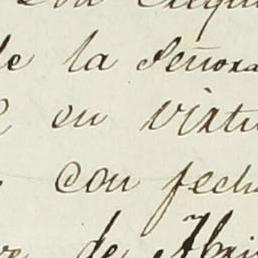 de la Señora
en virtu
con fecha
de Abri